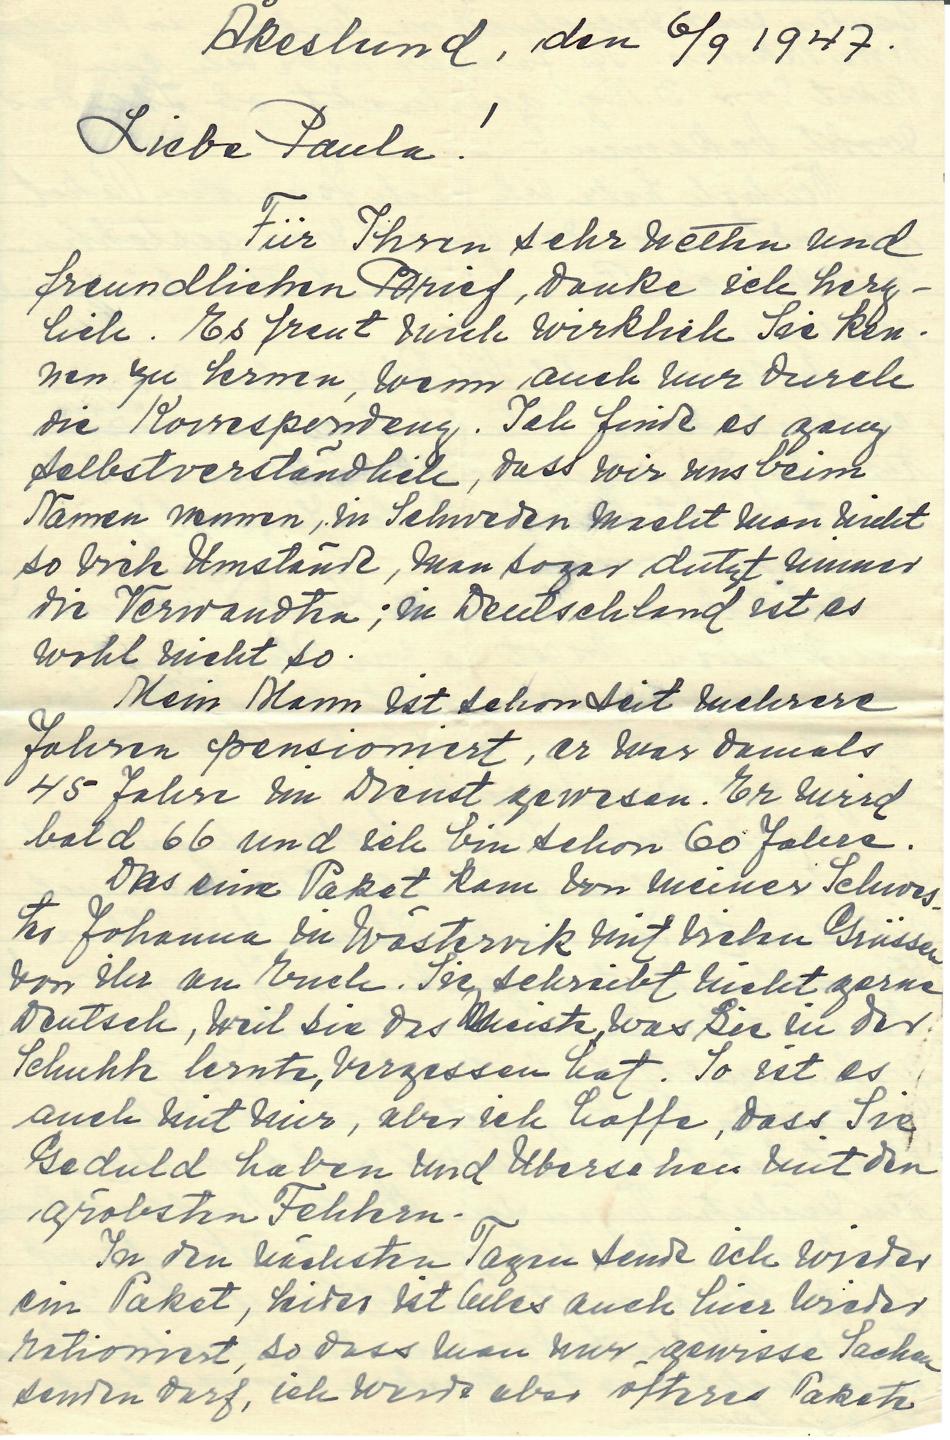 Åkeslund, den 6/9 1947.
Liebe Paula!
Für Ihren sehr netten und
freundlichen Brief, danke ich herz-
lich. Es freut mich wirklich Sie ken-
nen zu lernen, wenn auch nur durch
die Korrespondenz. Ich finde es ganz
selbstverständlich, dass wir uns beim
Namen nennen, in Schweden macht man nicht
so viele Umstände, man sogar dutzt immer
die Verwandten; in Deutschland ist es
wohl nicht so.
Mein Mann ist schon seit mehrere
Jahren pensioniert, er war damals
45 Jahre im Dienst gewesen. Er wird
bald 66 und ich bin schon 60 Jahre.
Das eine Paket kam von meiner Schwes-
ter Johanna in Wästervik mit vielen Grüssen
von ihr an Euch. Sie schreibt nicht gerne
Deutsch, weil sie das Meiste, was Sie in der
Schuhle lernte, vergessen hat. So ist es
auch mit mir, aber ich hoffe, dass Sie
Geduld haben und Übersehen mit den
gröbsten Fehlern.
In den nächsten Tagen sende ich wieder
ein Paket, leider ist alles auch hier wieder
rationiert, so dass man nur gewisse Sachen
senden darf, ich werde aber öfteres Pakete